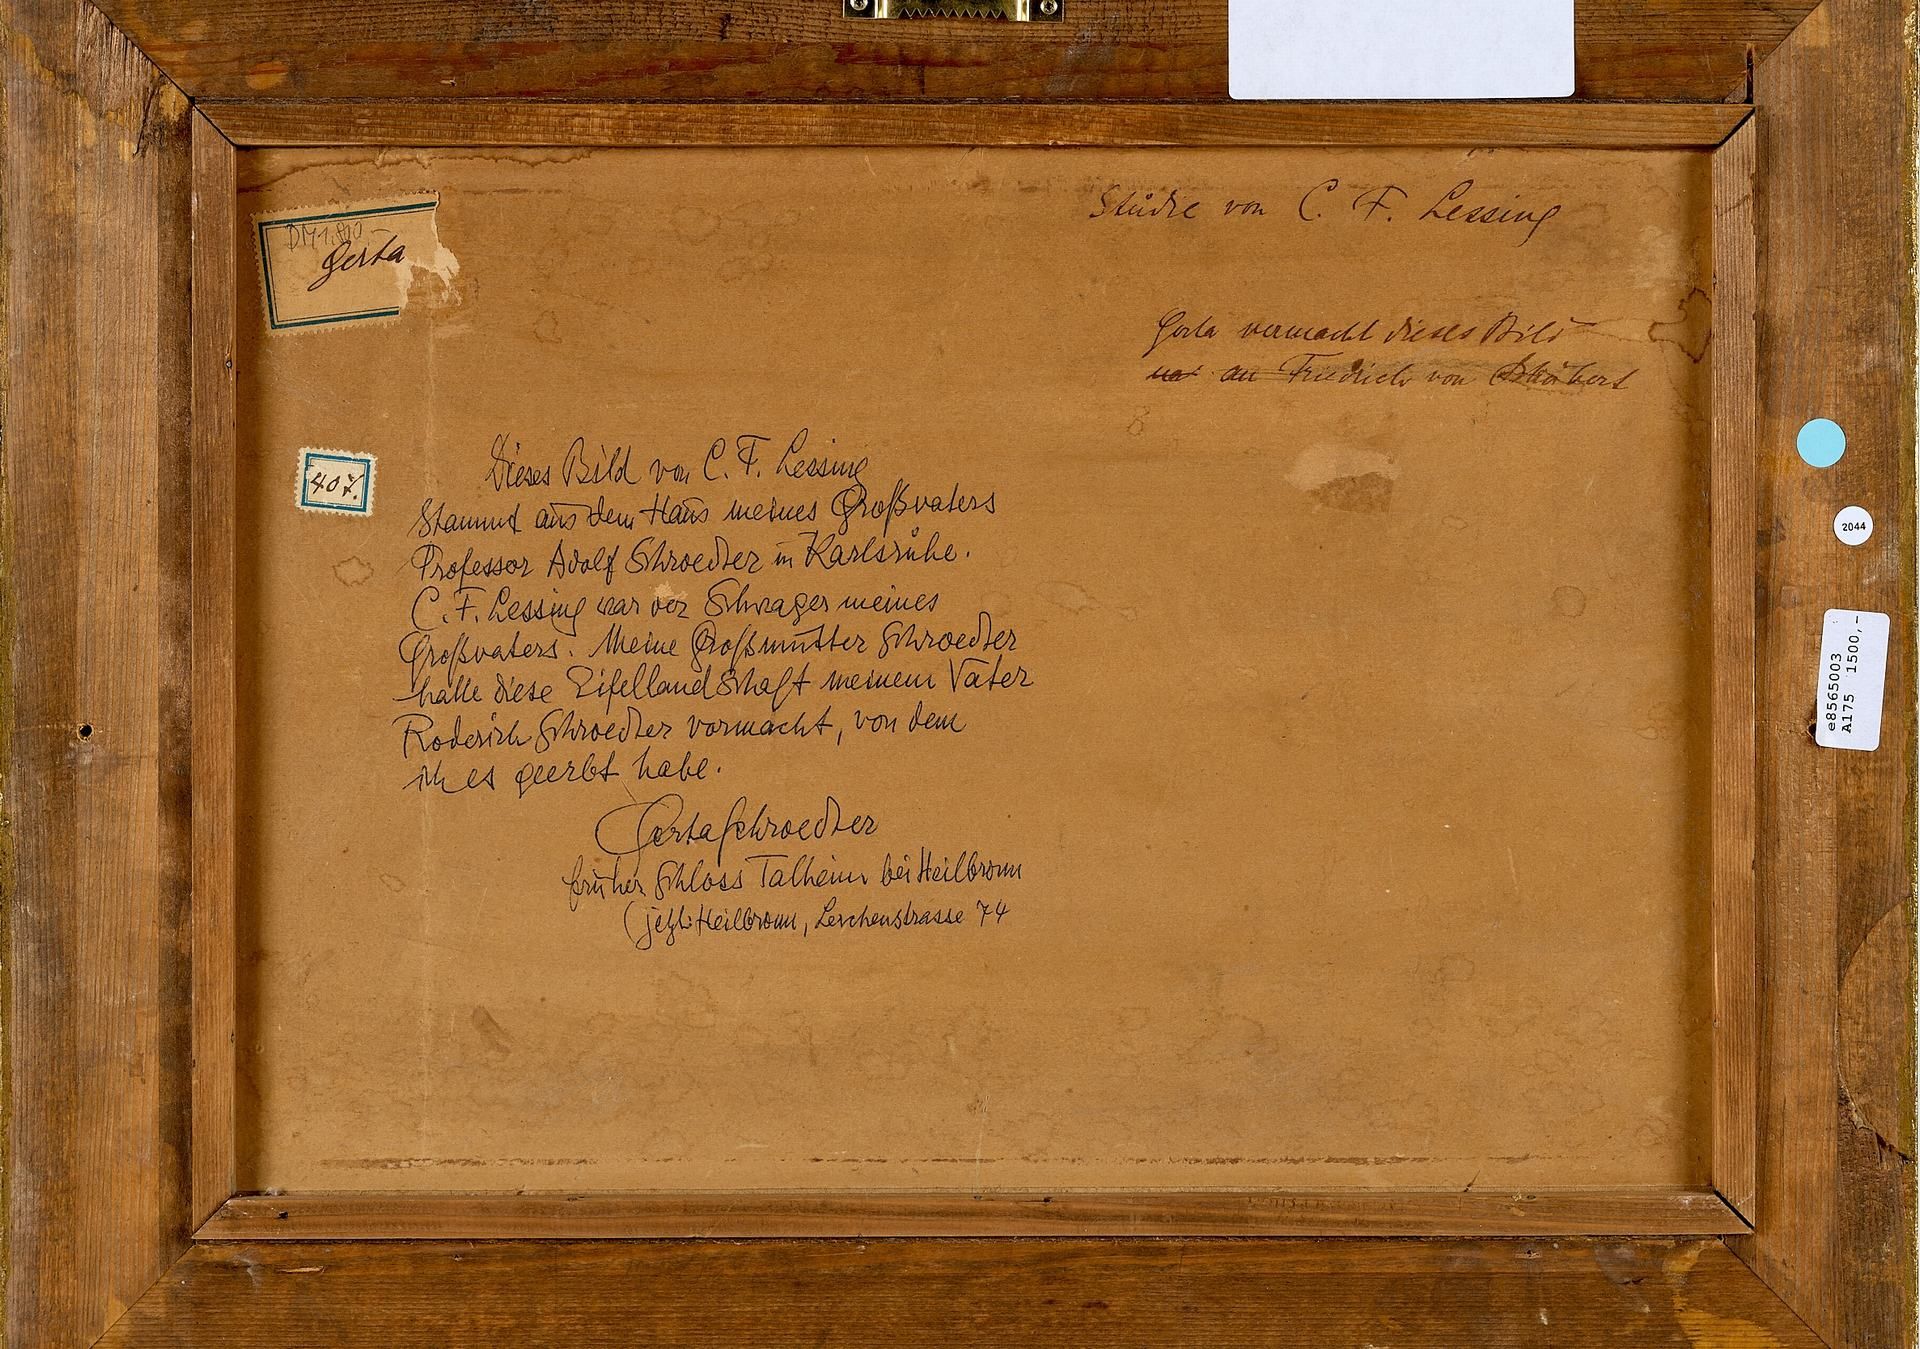 Studie von C. F. Lessing
Gerta
Gerta vermacht dieses Bild
an Friedrich von
407.
Dieses Bild von C. F. Lessing
Stammt aus dem Haus meines Großvaters
Professor Adolf Schroedter in Karlsruhe.
C. F. Lessing war der Schwager meines
Großvaters. Meine Großmutter Schroedter
hatte diese Eifellandschaft meinem Vater
Roderich Schroedter vermacht, von dem
ich es geerbt habe.
Gerta Schroedter
früher Schloss Talheim bei Heilbronn
(jetzt Heilbronn, Lerchenstrasse 74
2044
e8565003
A175 1500,-